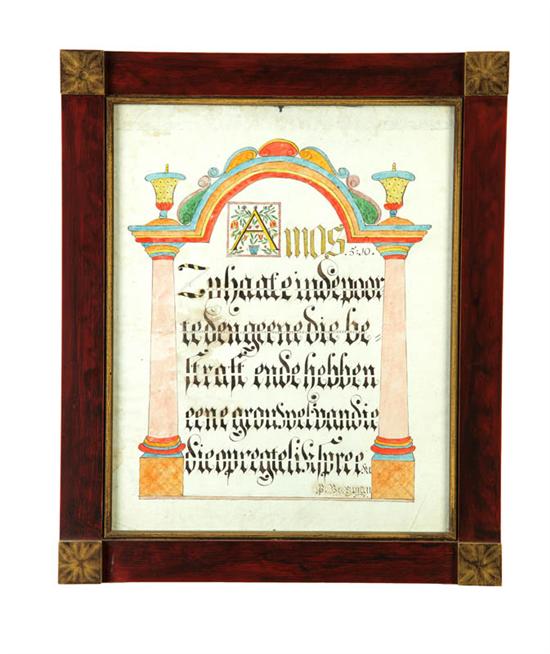 Amos. 5:10.
Zy haat en in de poor
te den geene die be=
straft ende hebben
eene grouwel van die
die opregtelick spree &c